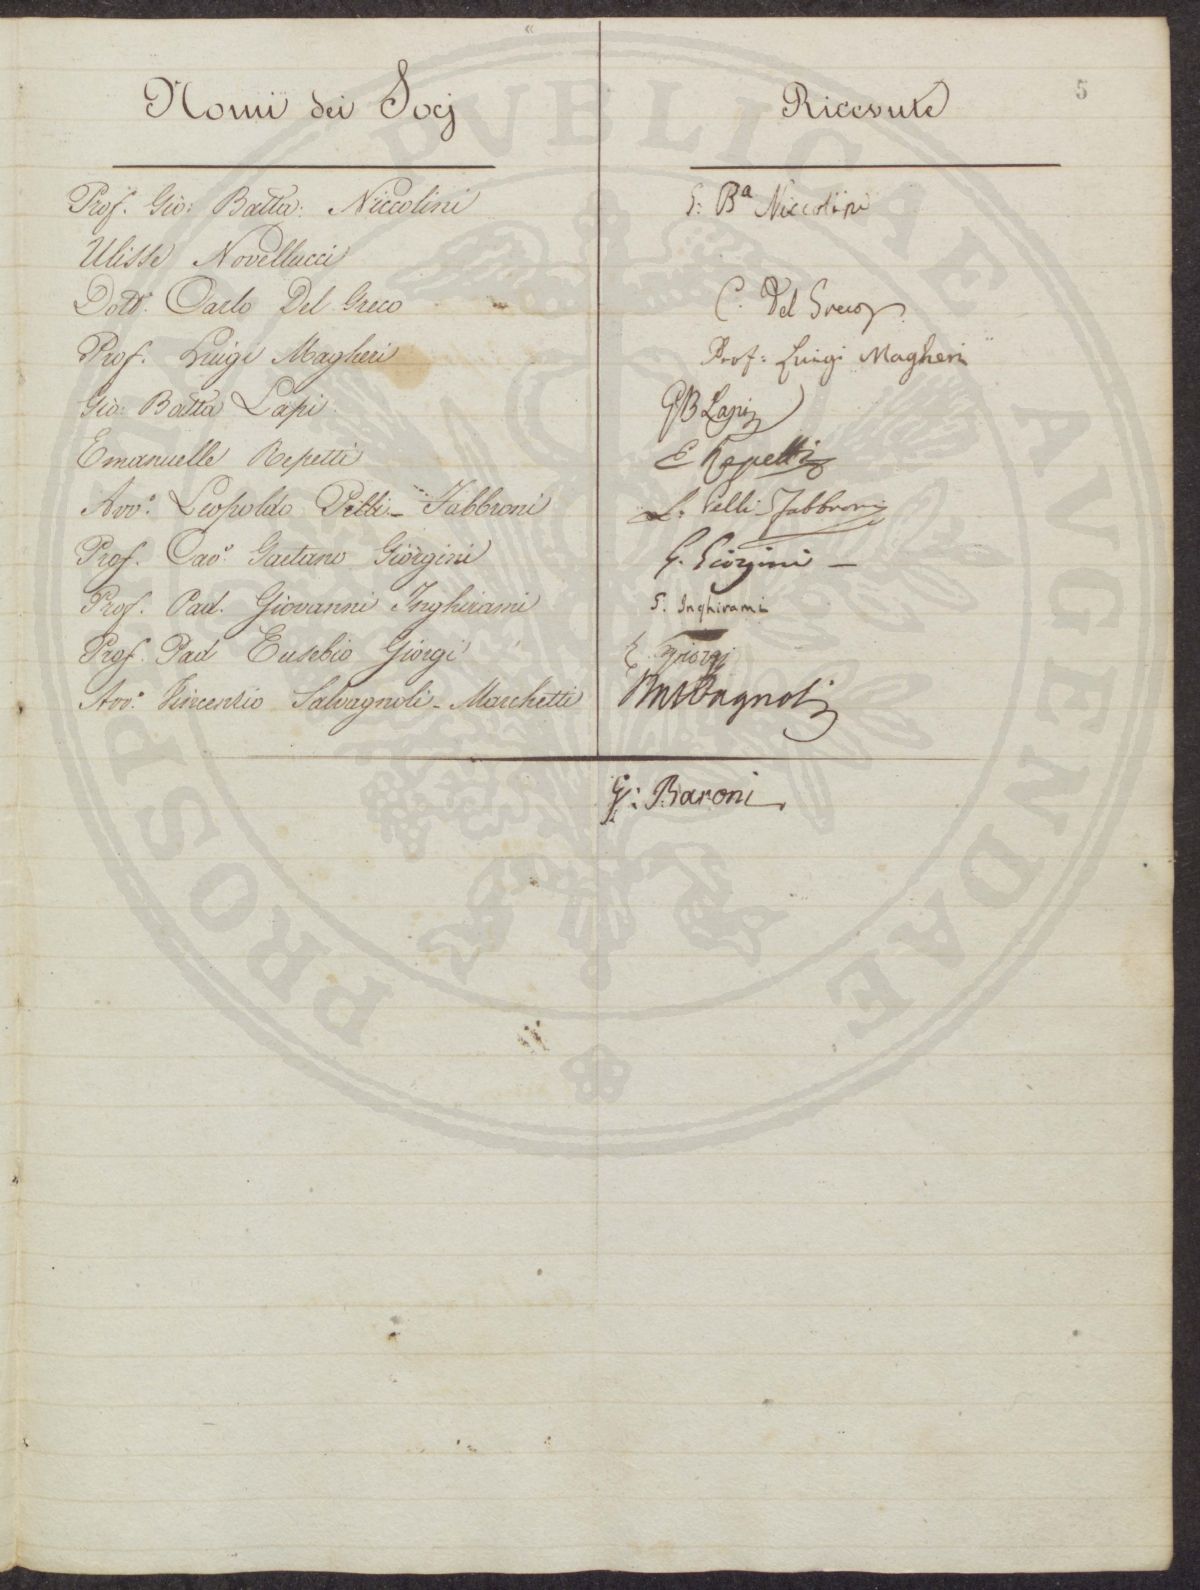 5
Nomi dei Socj Ricevute
Prof. Gio: Batta: Niccolini G: Bª Niccolini
Ulisse Novellucci
Dott. Carlo Del Greco C. Del Greco
Prof. Luigi Magheri Prof: Luigi Magheri
Gio: Batta Lapi GB Lapi
Emanuelle Repetti E Repetti
Avv.º Leopoldo Pelli-Fabbroni L. Pelli Fabbroni
Prof. Cav.º Gaetano Giorgini G. Giorgini
Prof. Pad. Giovanni Inghirami G. Inghirami
Prof. Pad Eusebio Giorgi E. Giorgi
Avv.º Vincenzio Salvagnoli-Marchetti
G: Baroni
PROSPERITATI PVBLICAE AVGENDAE